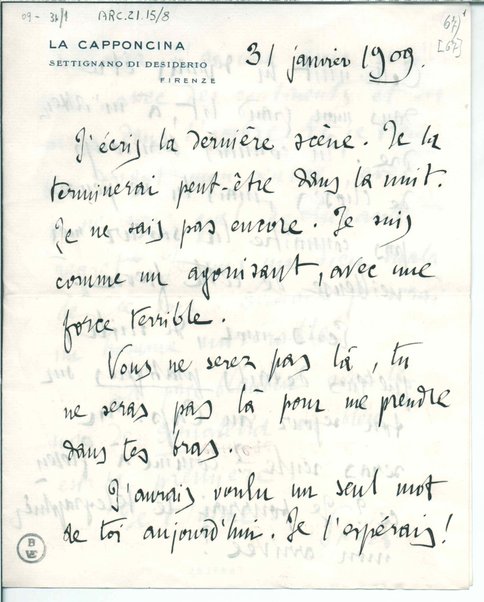 09-31/1 ARC.21.15/8
67/1
[67]
LA CAPPONCINA
SETTIGNANO DI DESIDERIO
FIRENZE
31 janvier 1909.
J'écris la dernière scène. Je la
terminerai peut-être dans la nuit.
Je ne sais pas encore. Je suis
comme un agonisant, avec une
force terrible.
Vous ne serez pas là, tu
ne seras pas là pour me prendre
dans tes bras.
J'aurais voulu un seul mot
de toi aujourd'hui. Je l'espérais!